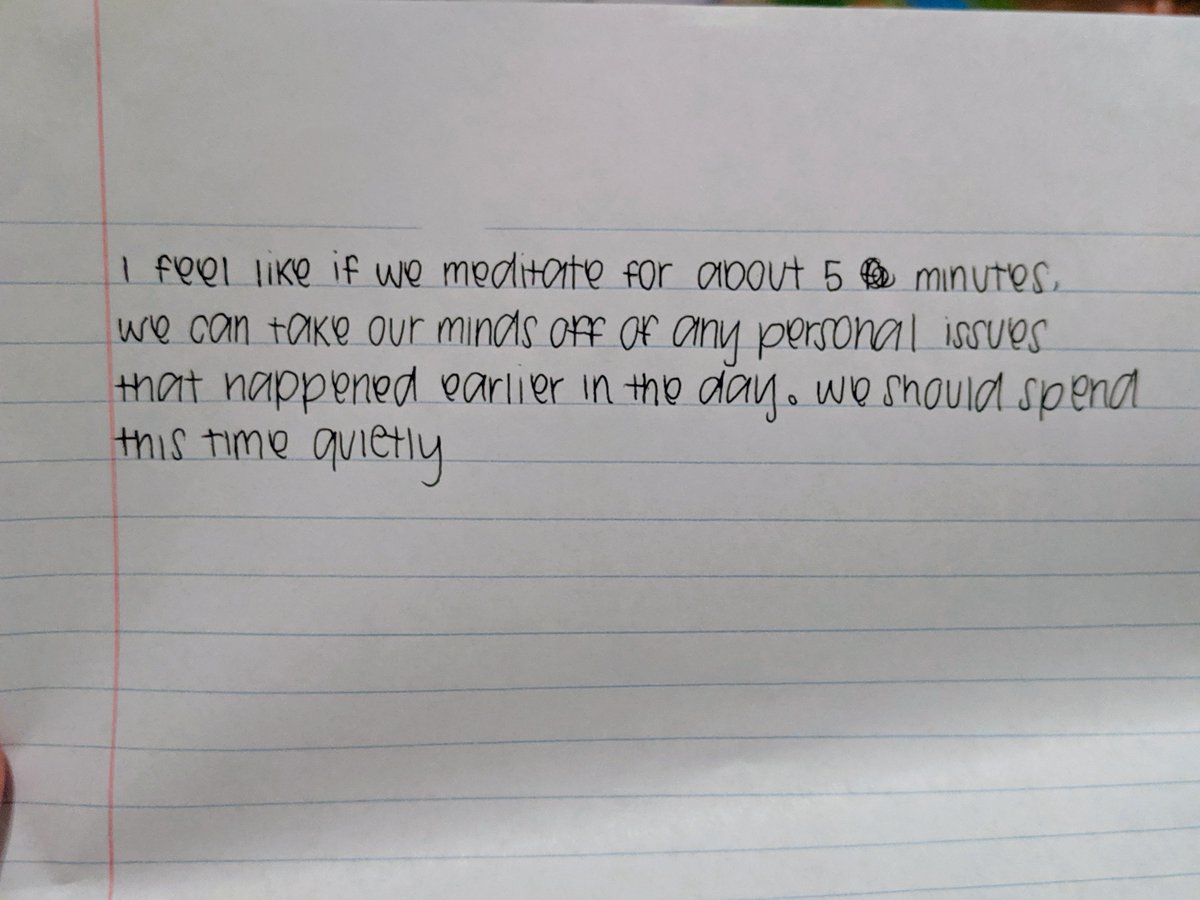 I feel like if we meditate for about 5 minutes,
we can take our minds off of any personal issues
that happened earlier in the day. we should spend
this time quietly